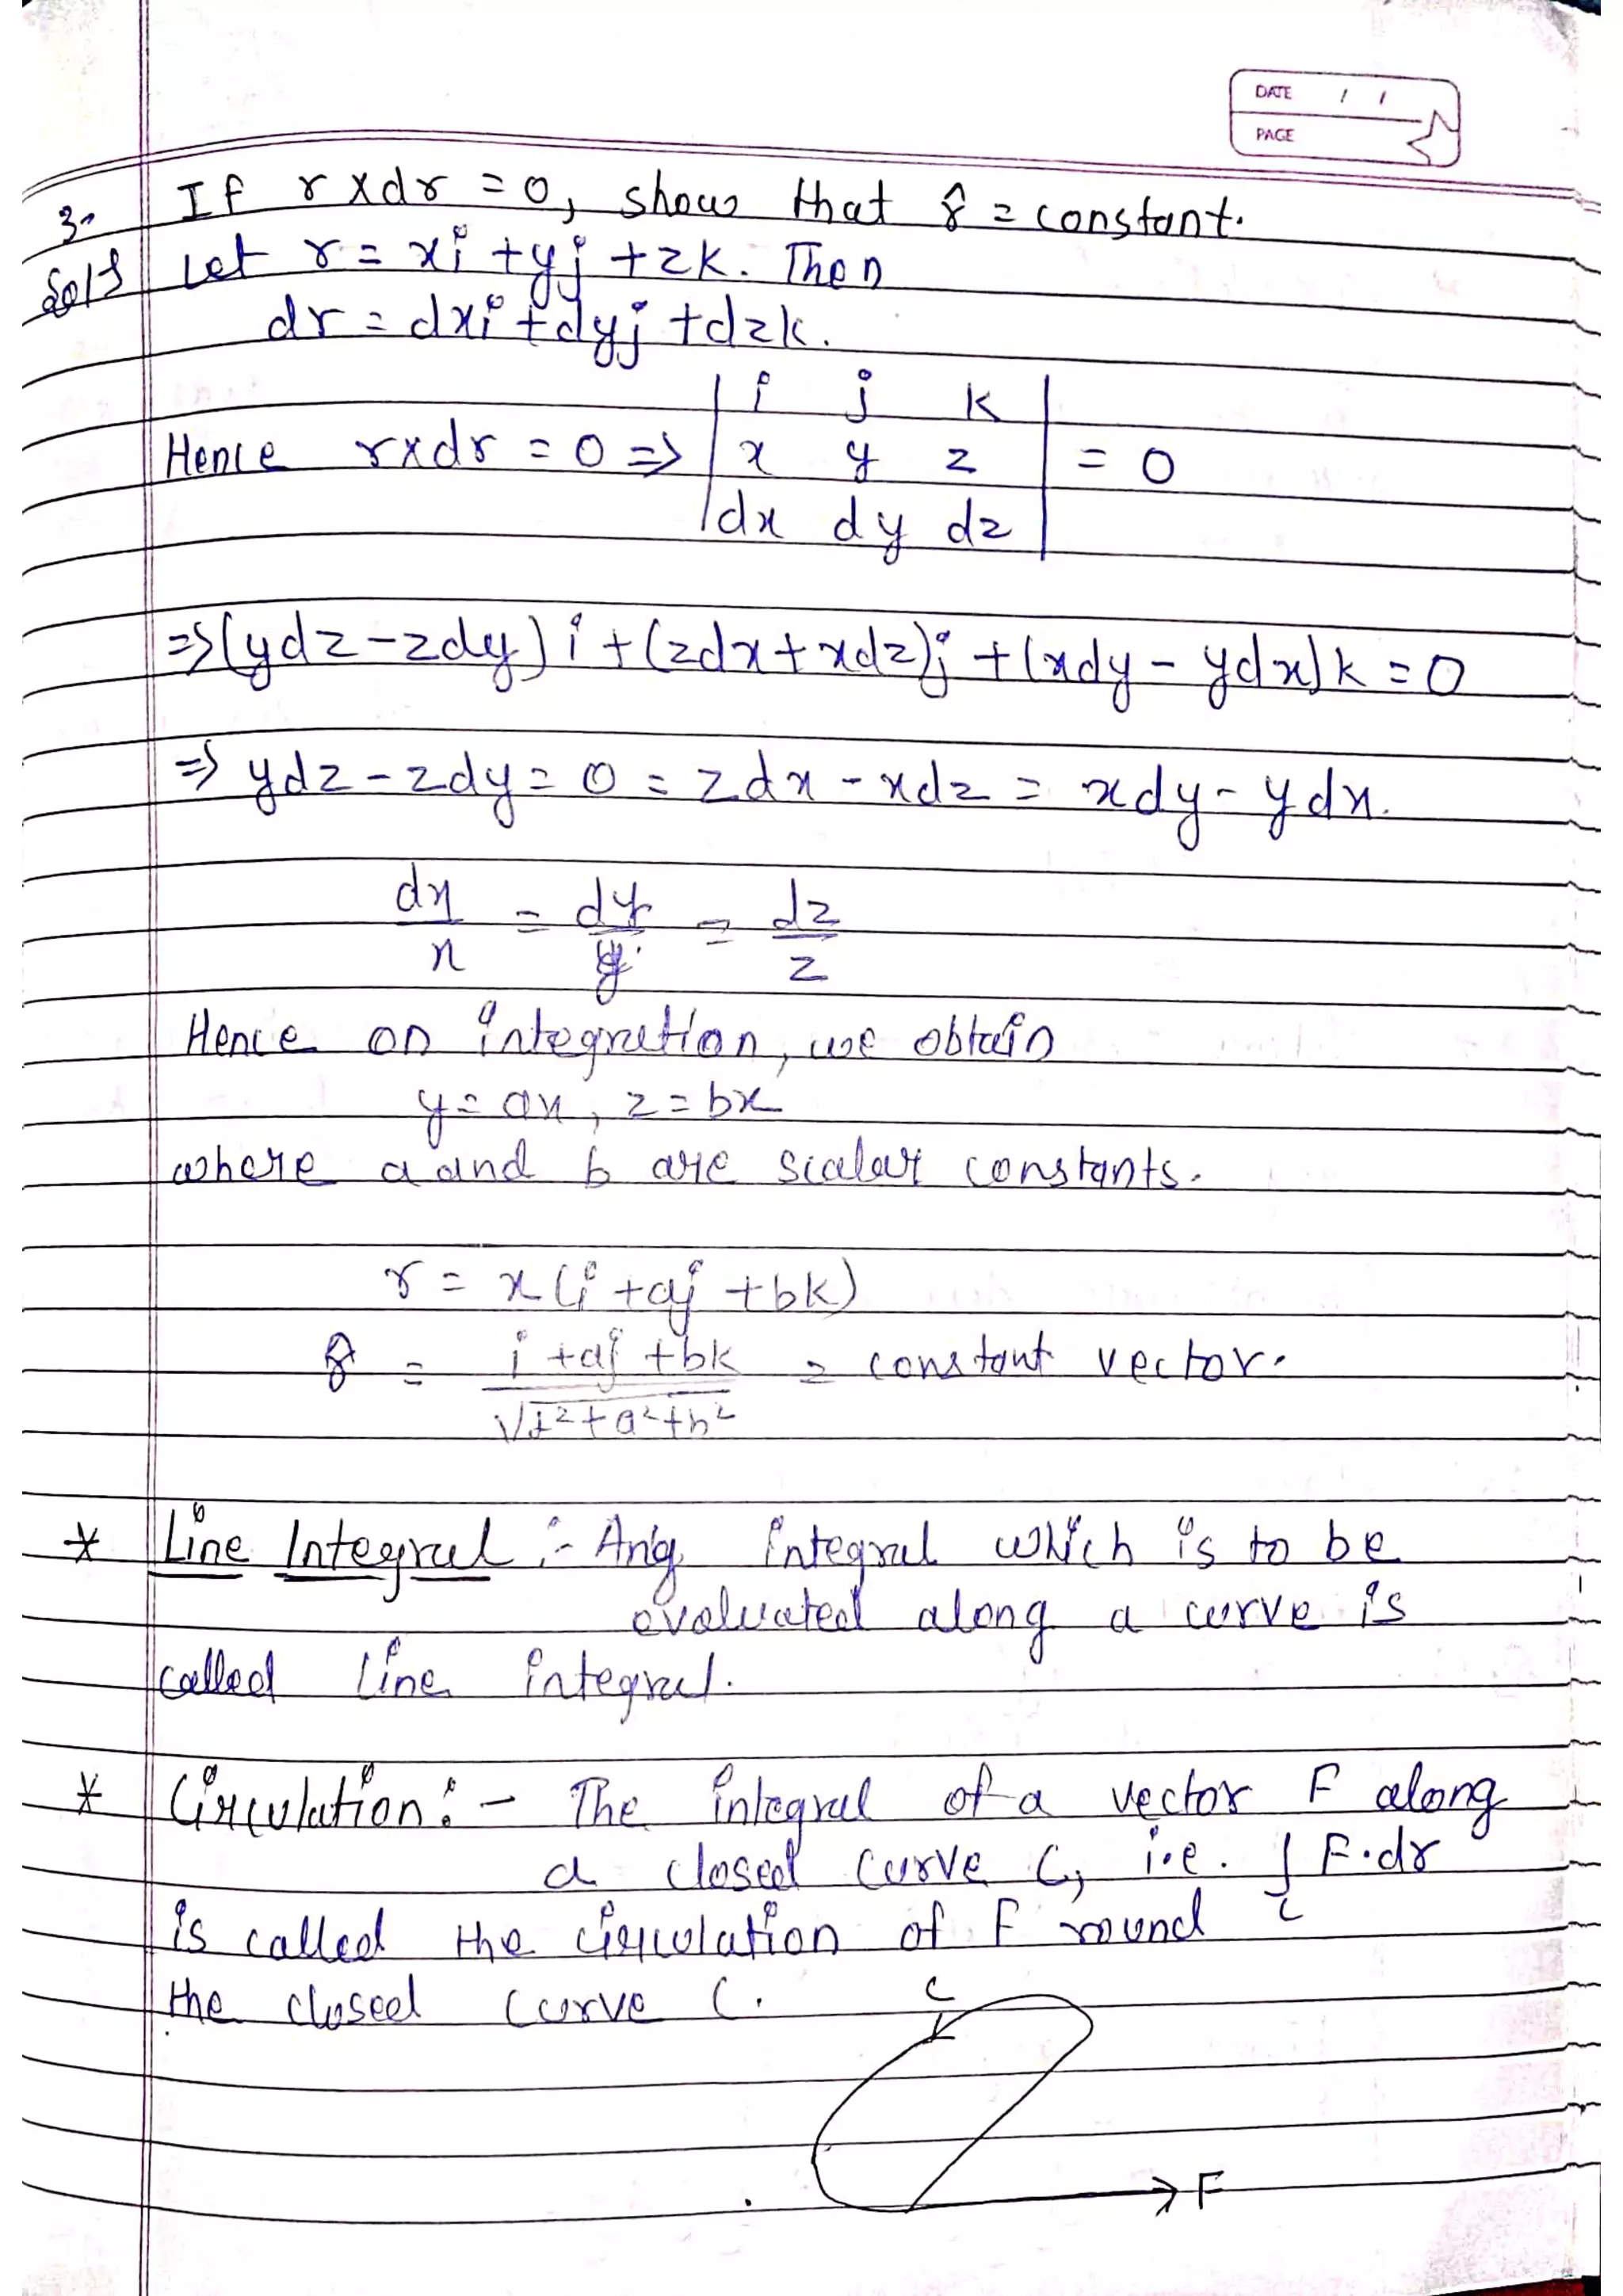 DATE / /
PAGE
3. If r x dr = 0, show that r̂ = constant.
Solⁿ Let r = xi + yj + zk. Then
dr = dxi + dyj + dzk.
Hence r x dr = 0 => | i j k |
| x y z | = 0
| dx dy dz |
=> (ydz - zdy) i + (zdx + xdz)j + (xdy - ydx)k = 0
=> ydz - zdy = 0 = zdx - xdz = xdy - ydx.
dx/x = dy/y = dz/z
Hence on integration, we obtain
y = ax, z = bx
where a and b are scalar constants.
r = x(i + aj + bk)
r̂ = i + aj + bk / √1² + a² + b² = constant vector.
* Line Integral :- Any integral which is to be
evaluated along a curve is
called line integral.
* Circulation :- The integral of a vector F along
a closed curve C, i.e. ∫c F.dr
is called the circulation of F round
the closed curve C.
C
F